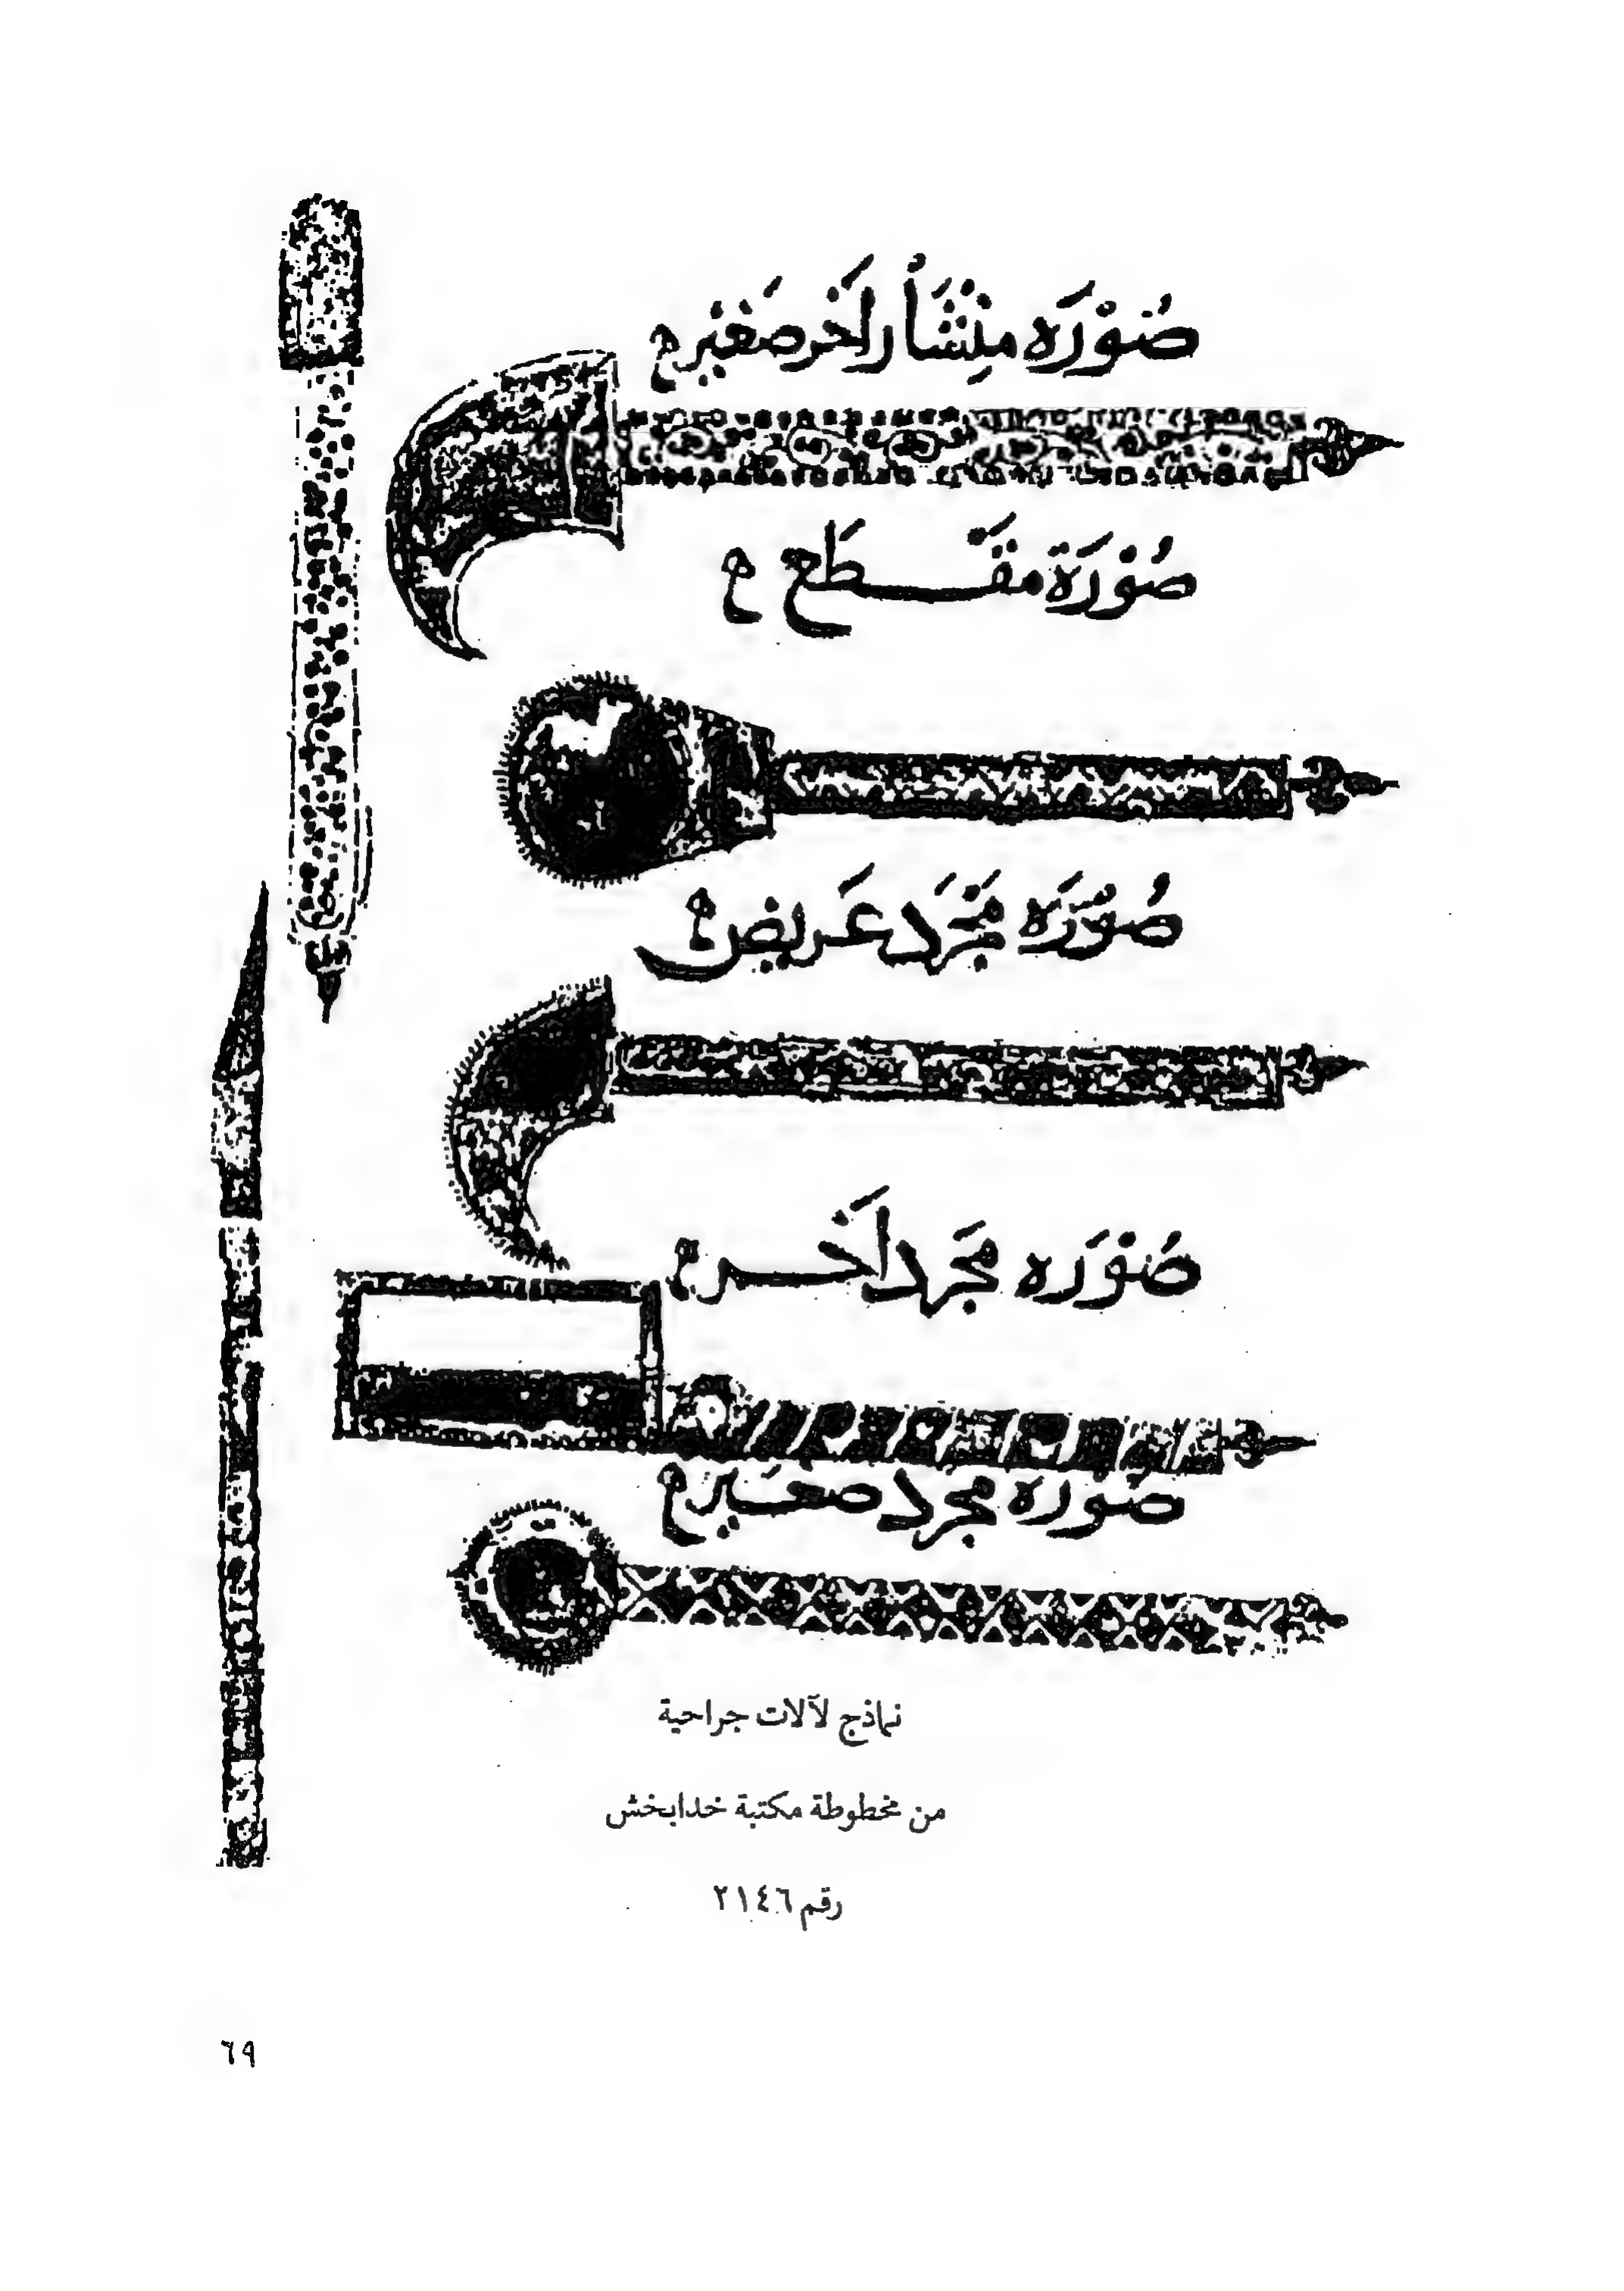 صُوْرَه مِنْشَأر اَخَر صَغيْر م
صُوْرَة مقَـــطَع م
صُوْرَه مجْرَد عَريض م
صُوْرَه مجَرد اَخَـــر م
صُورَه مجرد صغَير م
نماذج لآلات جراحية
من مخطوطة مكتبة خدابخش
رقم ٢١٤٦
٦٩